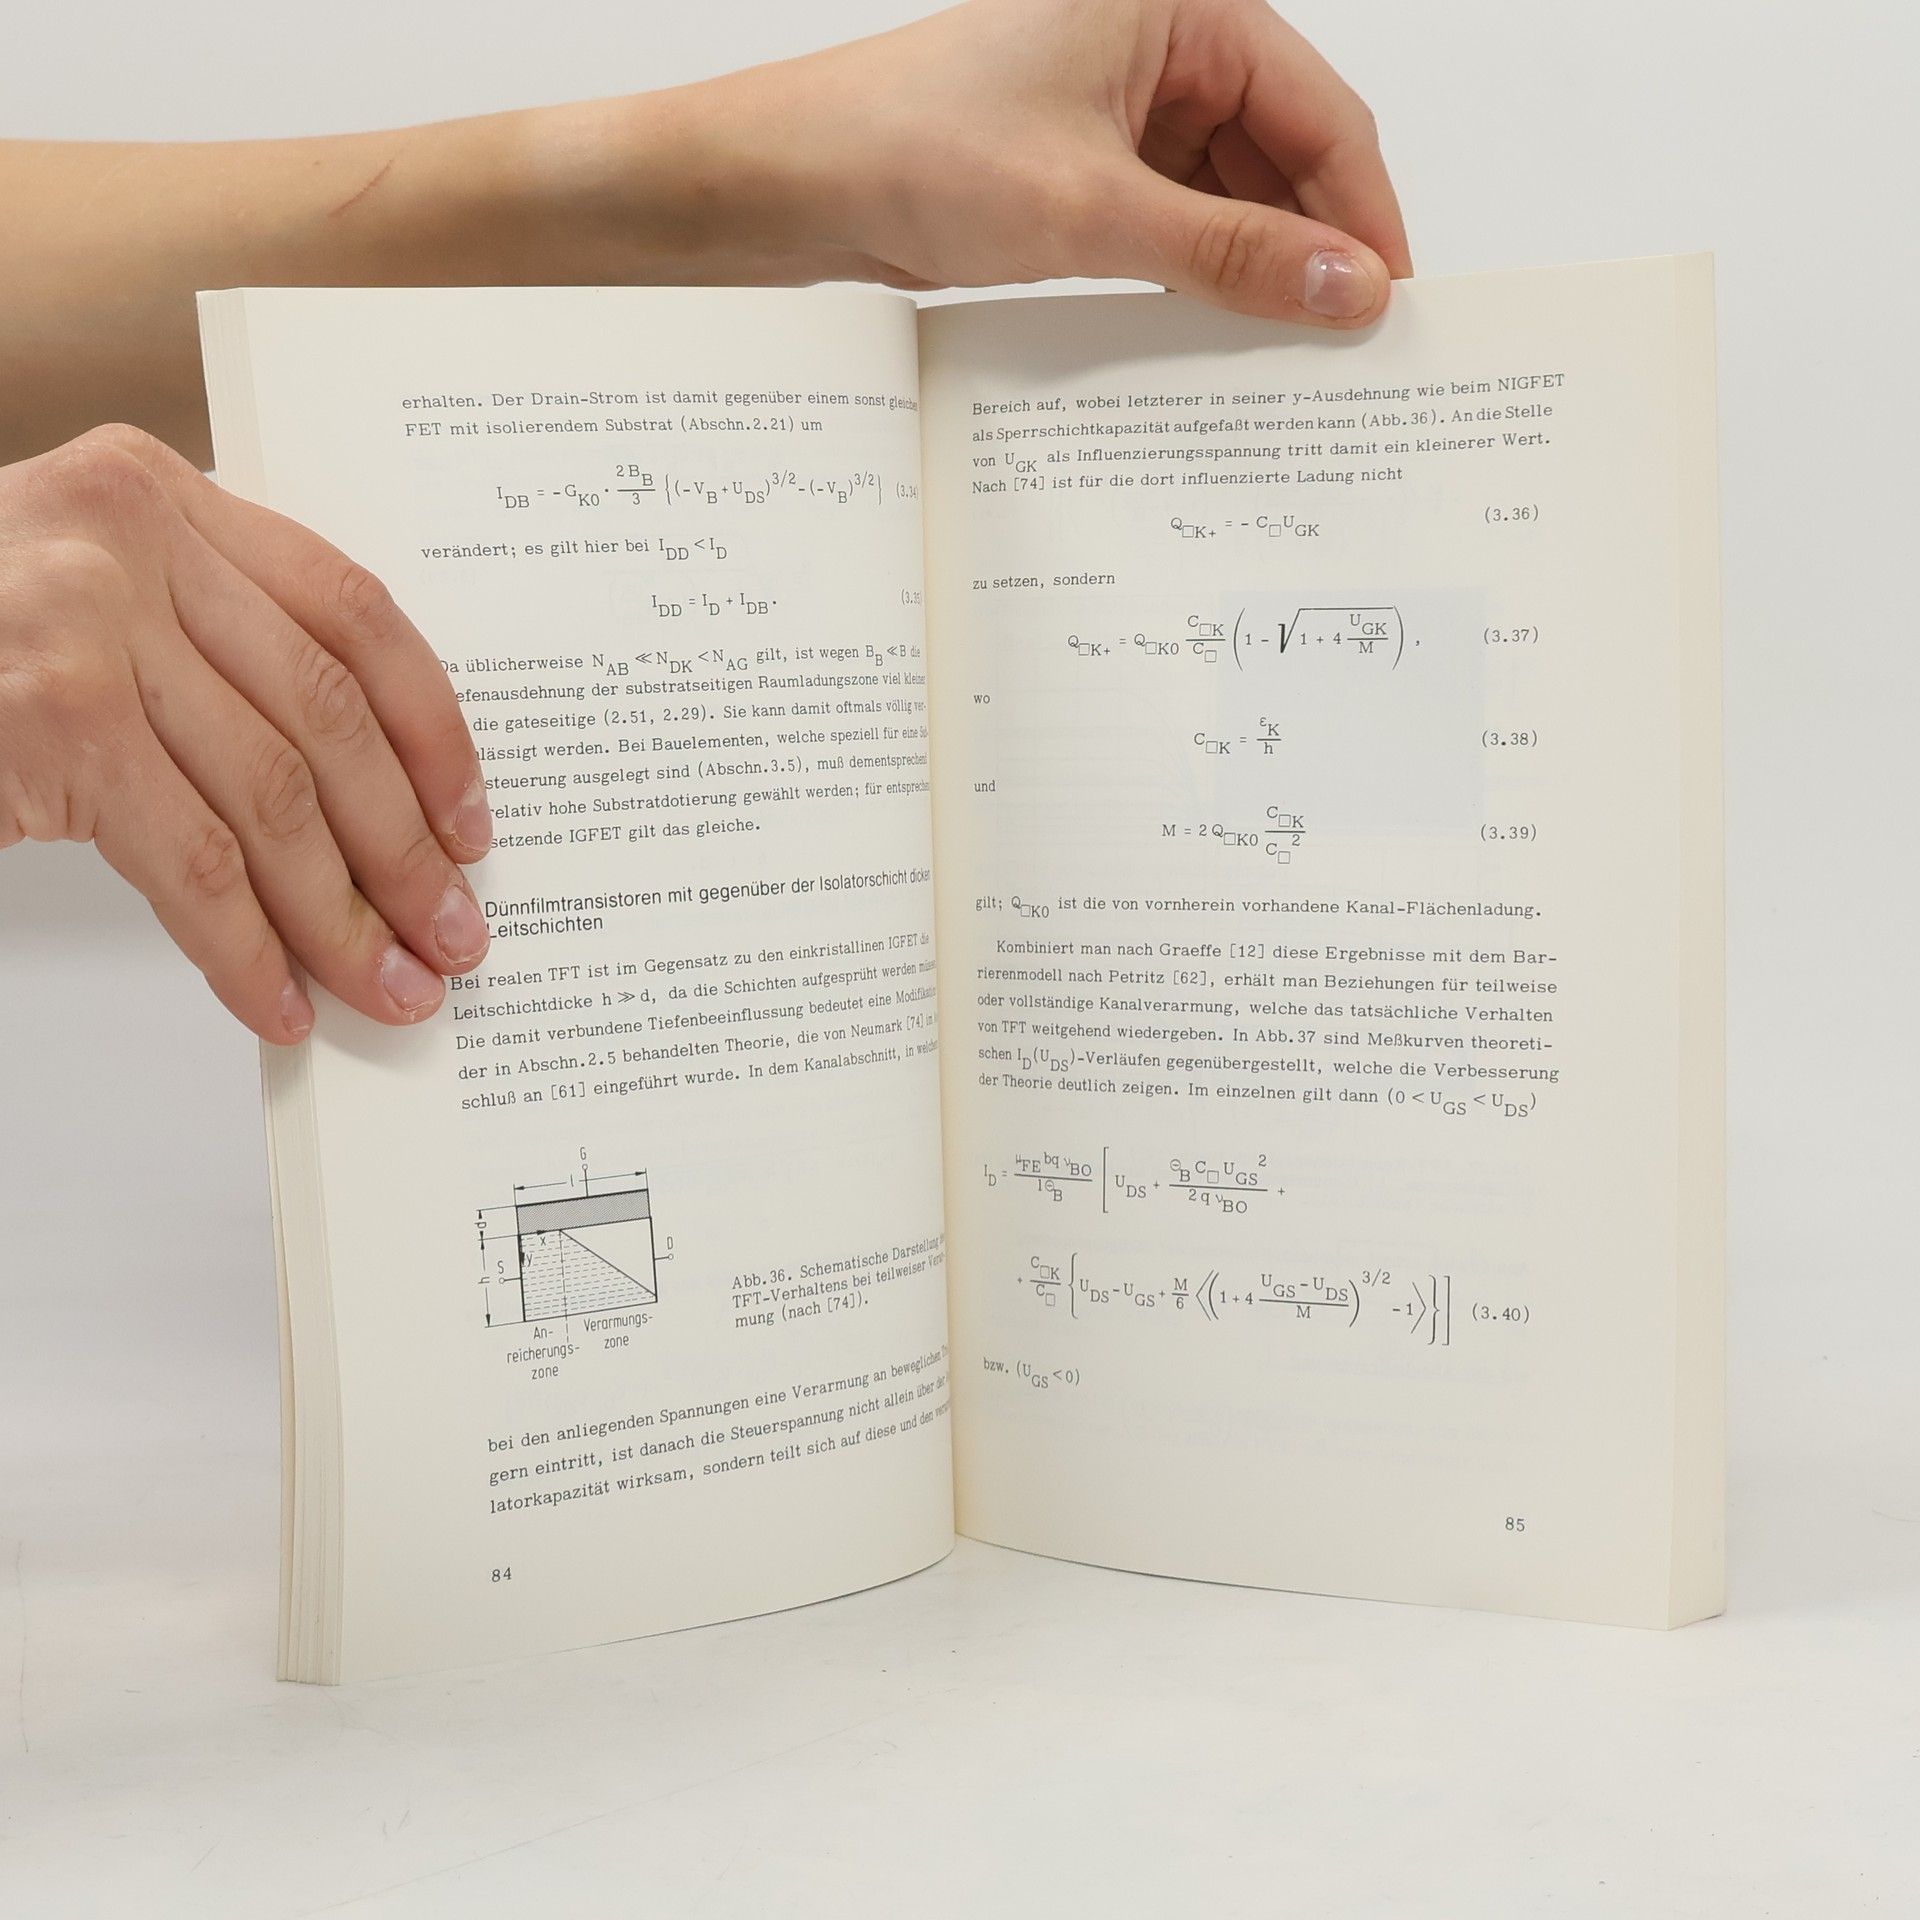 erhalten. Der Drain-Strom ist damit gegenüber einem sonst
FET mit isolierendem Substrat (Abschn.2.21) um
I_DB = -G_K0 · 2B_B/3 {(-V_B + U_DS)^3/2 - (-V_B)^3/2} (3.34
verändert; es gilt hier bei I_DD < I_D
I_DD = I_D + I_DB. (3.35
üblicherweise N_AB ≪ N_DK < N_AG gilt, ist wegen B_B ≪ B die
der substratseitigen Raumladungszone viel
die gateseitige (2.51, 2.29). Sie kann damit oftmals völlig ver-
werden. Bei Bauelementen, welche speziell für eine
steuerung ausgelegt sind (Abschn.3.5), muß
relativ hohe Substratdotierung gewählt werden; für
setzende IGFET gilt das gleiche.
Dünnfilmtransistoren mit gegenüber der Isolatorschicht
Leitschichten
Bei realen TFT ist im Gegensatz zu den einkristallinen IGFET die
Leitschichtdicke h ≫ d, da die Schichten aufgesprüht werden
Die damit verbundene Tiefenbeeinflussung bedeutet eine
der in Abschn.2.5 behandelten Theorie, die von Neumark [74] im
schluß an [61] eingeführt wurde. In dem Kanalabschnitt, in
G
l
d
x
y
h
S
D
An-
reicherungs-
zone
Verarmungs-
zone
Abb.36. Schematische Darstellung
TFT-Verhaltens bei teilweiser
mung (nach [74]).
bei den anliegenden Spannungen eine Verarmung an beweglichen
gern eintritt, ist danach die Steuerspannung nicht allein über der
latorkapazität wirksam, sondern teilt sich auf diese und den
84
Bereich auf, wobei letzterer in seiner y-Ausdehnung wie beim NIGFET
als Sperrschichtkapazität aufgefaßt werden kann (Abb.36). An die Stelle
von U_GK als Influenzierungsspannung tritt damit ein kleinerer Wert.
Nach [74] ist für die dort influenzierte Ladung nicht
Q_□K+ = - C_□ U_GK (3.36)
zu setzen, sondern
Q_□K+ = Q_□K0 C_□K/C_□ (1 - √(1 + 4 U_GK/M)) , (3.37)
wo
C_□K = ε_K/h (3.38)
und
M = 2 Q_□K0 C_□K/C_□^2 (3.39)
gilt; Q_□K0 ist die von vornherein vorhandene Kanal-Flächenladung.
Kombiniert man nach Graeffe [12] diese Ergebnisse mit dem Bar-
rierenmodell nach Petritz [62], erhält man Beziehungen für teilweise
oder vollständige Kanalverarmung, welche das tatsächliche Verhalten
von TFT weitgehend wiedergeben. In Abb.37 sind Meßkurven theoreti-
schen I_D(U_DS)-Verläufen gegenübergestellt, welche die Verbesserung
der Theorie deutlich zeigen. Im einzelnen gilt dann (0 < U_GS < U_DS)
I_D = μ_FE bq ν_BO/lΘ_B [ U_DS + Θ_B C_□ U_GS^2/2 q ν_BO +
+ C_□K/C_□ {U_DS - U_GS + M/6 ⟨(1 + 4 U_GS - U_DS/M)^3/2 - 1⟩}] (3.40)
bzw. (U_GS < 0)
85